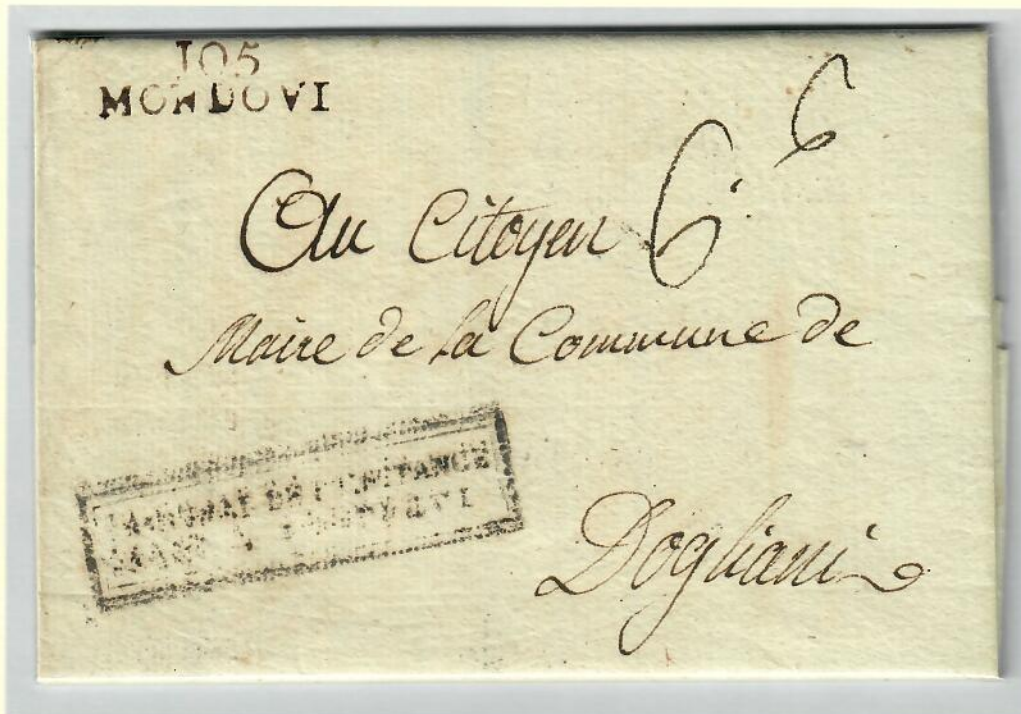 105
MONDOVI
6
Au Citoyen 6
Maire de la Commune de
Dogliani